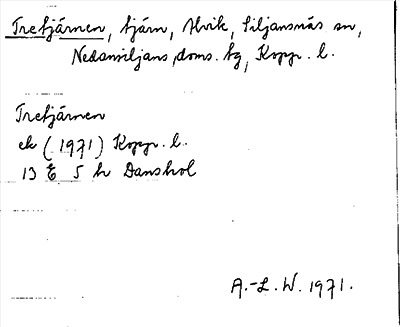 Tretjärnen, tjärn, Alvik, Siljansnäs sn,
Nedansiljans doms. tg, Kopp. l.
Tretjärnen
ek (1971) Kopp. l.
13 E 5 h Danshol
A.-L. W. 1971.